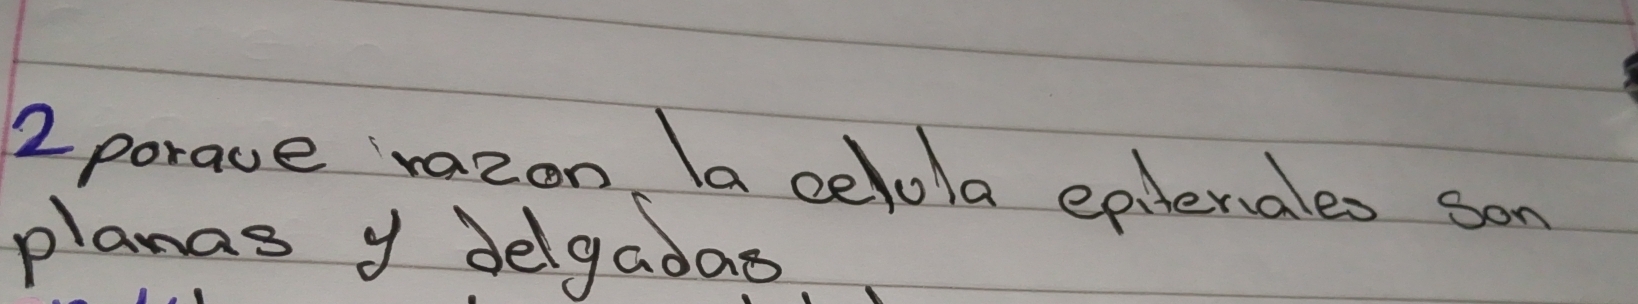 2 porque razon la celula epiteriales son
planas y delgadas